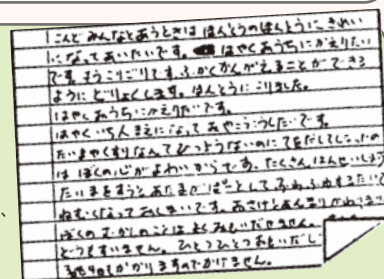 こんどみんなとあうときは ほんとうのほんとうに きれい
になってあいたいです。 はやくおうちにかえりたい
です。もうこりごりです。ふかくかんがえることができる
ようにどりょくします。ほんとうにこりました。
はやくおうちにかえりたいです。
はやくいち人まえになっておやこうこうしたいです。
たいまやくすりなんてひつようないのにてをだしてしまったの
はぼくの心がよわいからです。たくさんはんせいします
たいまをすうとあたまがぼーとしてふわふわする
ねむくなっておしまいです。おさけとあんまりかわりませ
ぼくのむかしのことはよくおもいだせません。
どうもすいません。ひとつひとつおもいだし
かかりますのでかけません。